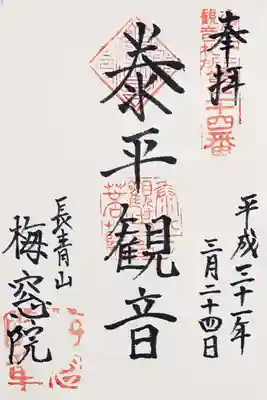 奉拝
二十四番
平成三十一年
三月二十四日
泰平観音
長青山
梅窓院